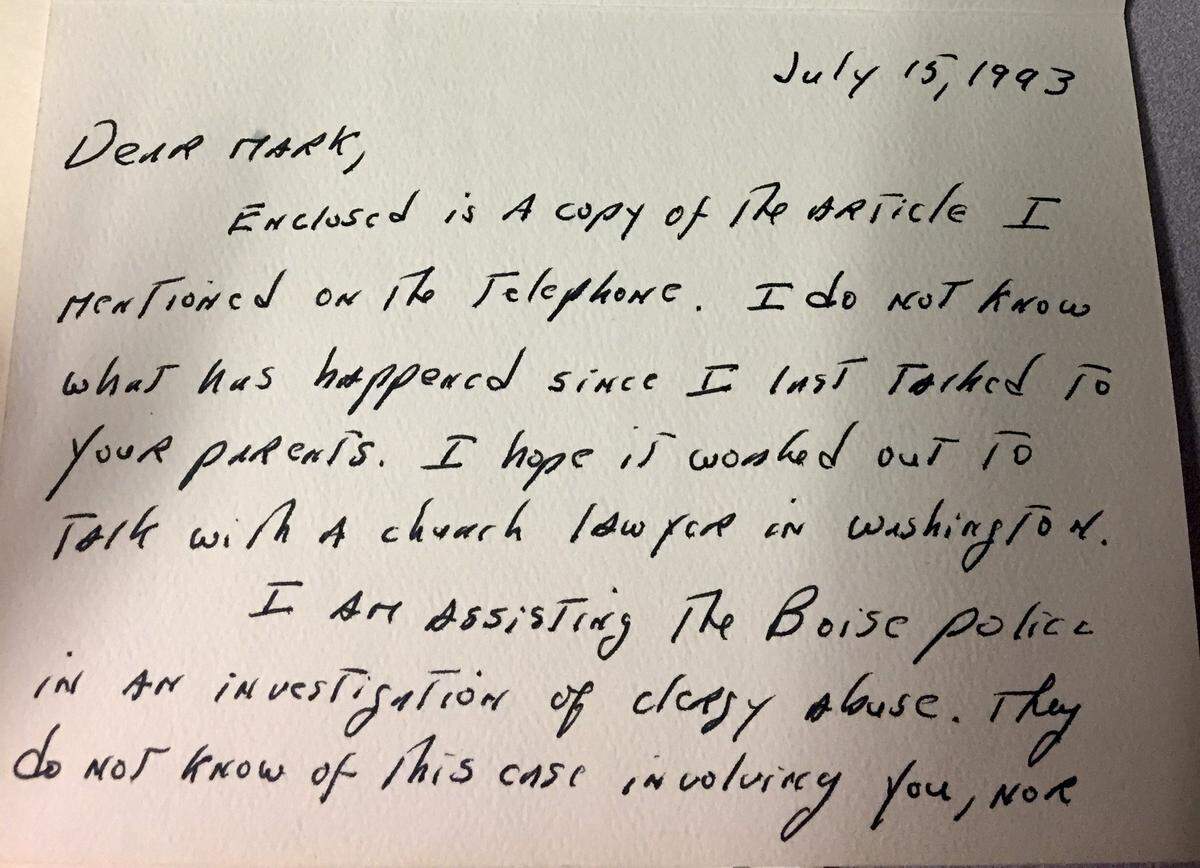 July 15, 1993
Dear Mark,
Enclosed is a copy of the article I
mentioned on the telephone. I do not know
what has happened since I last talked to
your parents. I hope it worked out to
talk with a church lawyer in Washington.
I am assisting the Boise police
in an investigation of clergy abuse. They
do not know of this case involving you, nor